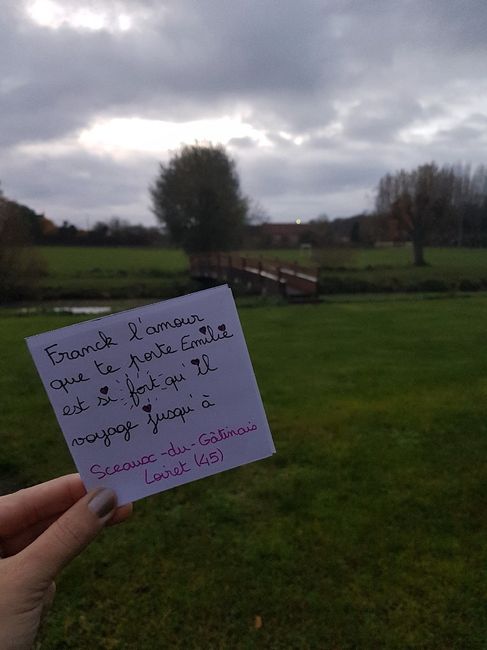 Franck l'amour
que te porte Emilie
est si fort qu'il
voyage jusqu'à
Sceaux-du-Gâtinais
Loiret (45)